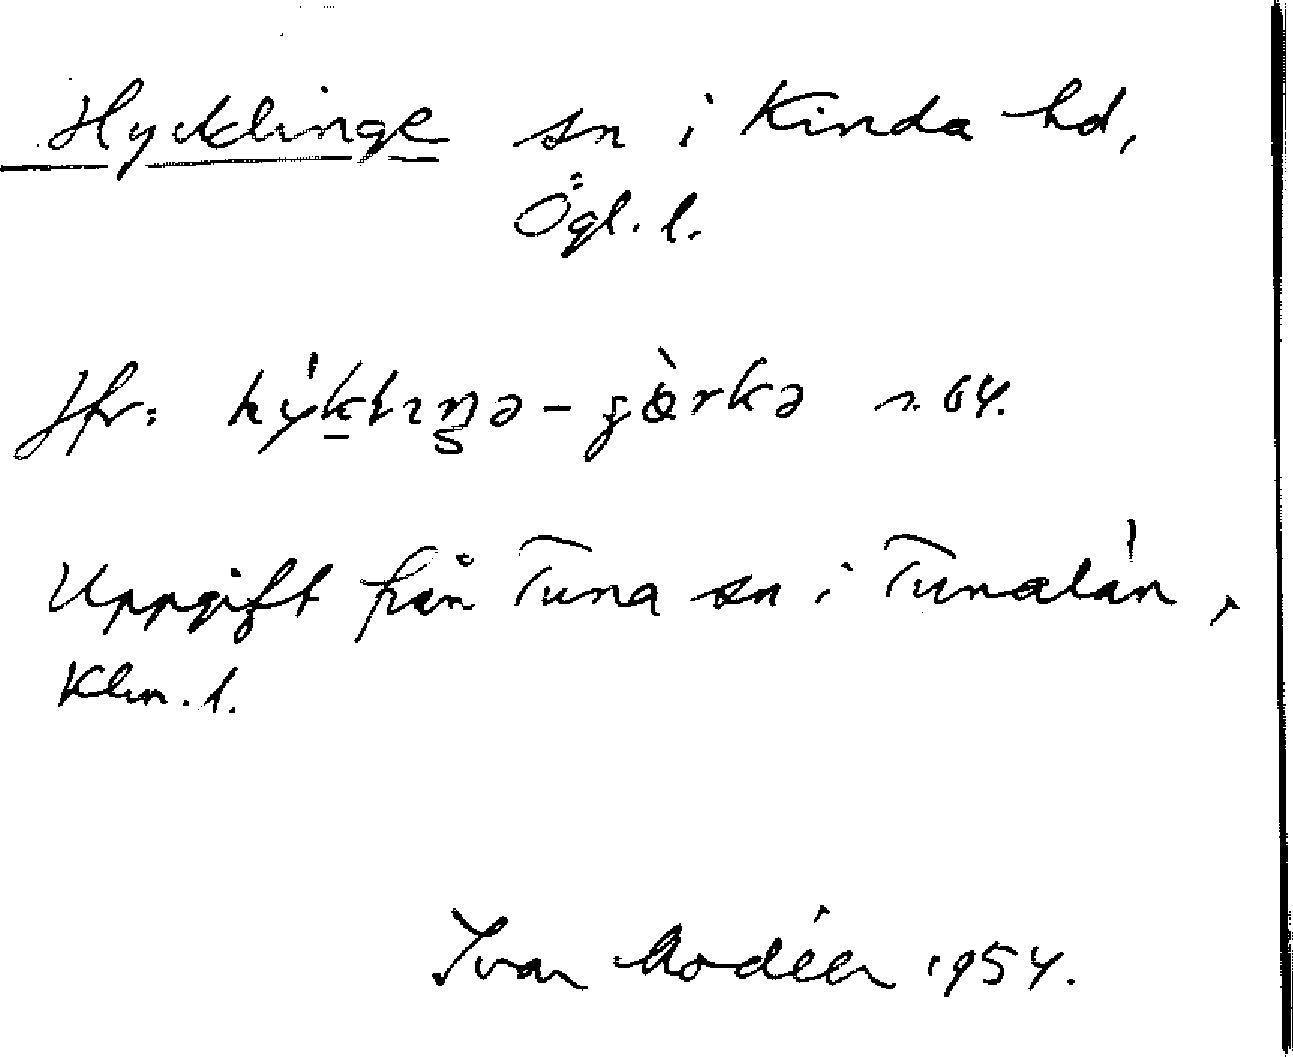 Hycklinge sn i Kinda hd,
Ögl. l.
hýklıŋə-
Uppgift från Tuna sn i Tunalän,
Klm. l.
Ivar Modéer 1954.